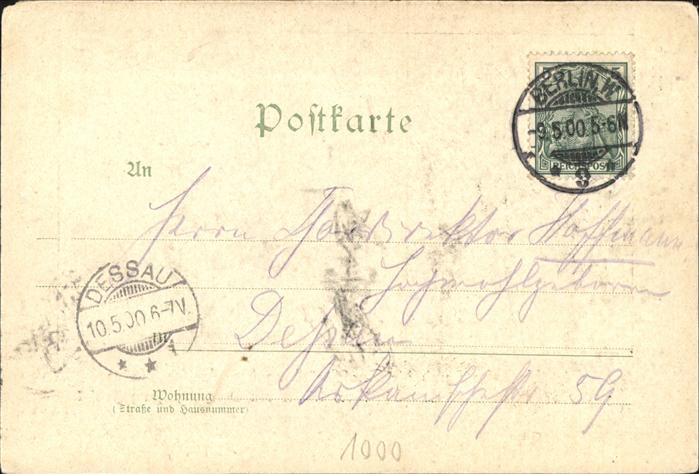 Postkarte
BERLIN. W.
-9.5.00.5-6N.
* 9 *
REICHSPOST
5
An
Herrn Hoffmann
Hochwohlgeboren
DESSAU
10.5.00.6-7V.
* *
1
Dessau
59
Wohnung
(Straße und Hausnummer)
1000